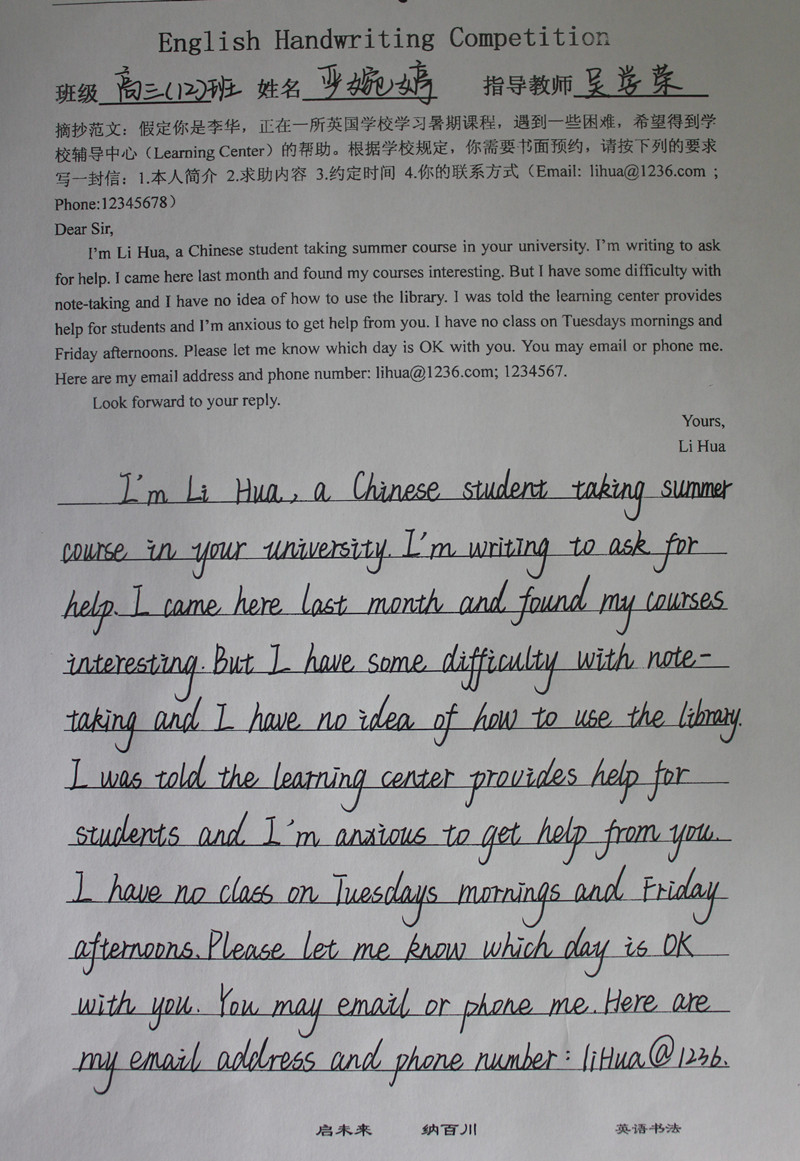 English Handwriting Competition
班级 高三(12)班 姓名 婉婷 指导教师 吴荣
摘抄范文：假定你是李华，正在一所英国学校学习暑期课程，遇到一些困难，希望得到学
校辅导中心（Learning Center）的帮助。根据学校规定，你需要书面预约，请按下列的要求
写一封信：1.本人简介 2.求助内容 3.约定时间 4.你的联系方式（Email: lihua@1236.com ;
Phone:12345678）
Dear Sir,
I'm Li Hua, a Chinese student taking summer course in your university. I'm writing to ask
for help. I came here last month and found my courses interesting. But I have some difficulty with
note-taking and I have no idea of how to use the library. I was told the learning center provides
help for students and I'm anxious to get help from you. I have no class on Tuesdays mornings and
Friday afternoons. Please let me know which day is OK with you. You may email or phone me.
Here are my email address and phone number: lihua@1236.com; 1234567.
Look forward to your reply.
Yours,
Li Hua
I'm Li Hua, a Chinese student taking summer
course in your university. I'm writing to ask for
help. I came here last month and found my courses
interesting. But I have some difficulty with note-
taking and I have no idea of how to use the library.
I was told the learning center provides help for
students and I'm anxious to get help from you.
I have no class on Tuesdays mornings and Friday
afternoons. Please let me know which day is OK
with you. You may email or phone me. Here are
my email address and phone number: liHua@1236.
启未来 纳百川 英语书法